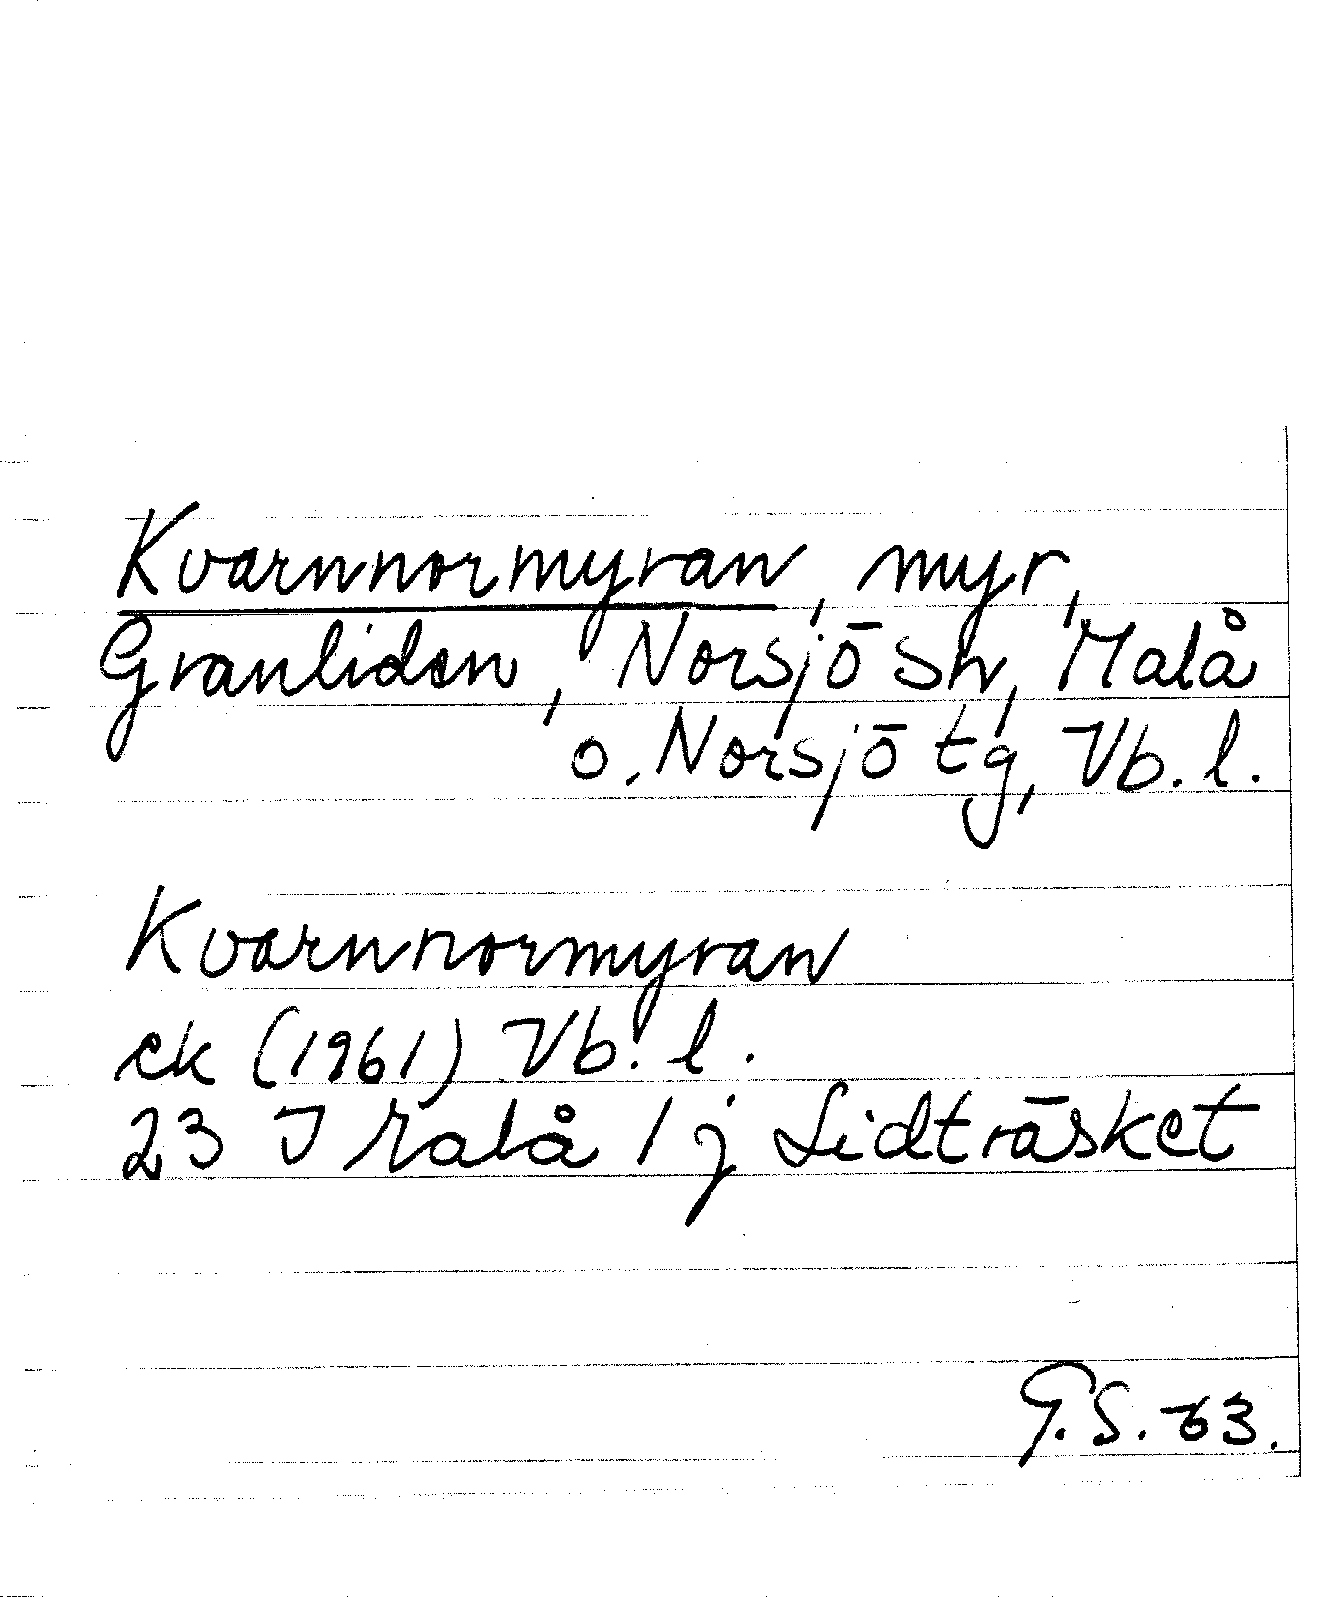 Kvarnnormyran, myr,
Granliden, Norsjö sn, Malå
o. Norsjö tg, Vb. l.
Kvarnnormyran
ek (1961) Vb. l.
23 I Malå / j Lidträsket
G.S. 63.